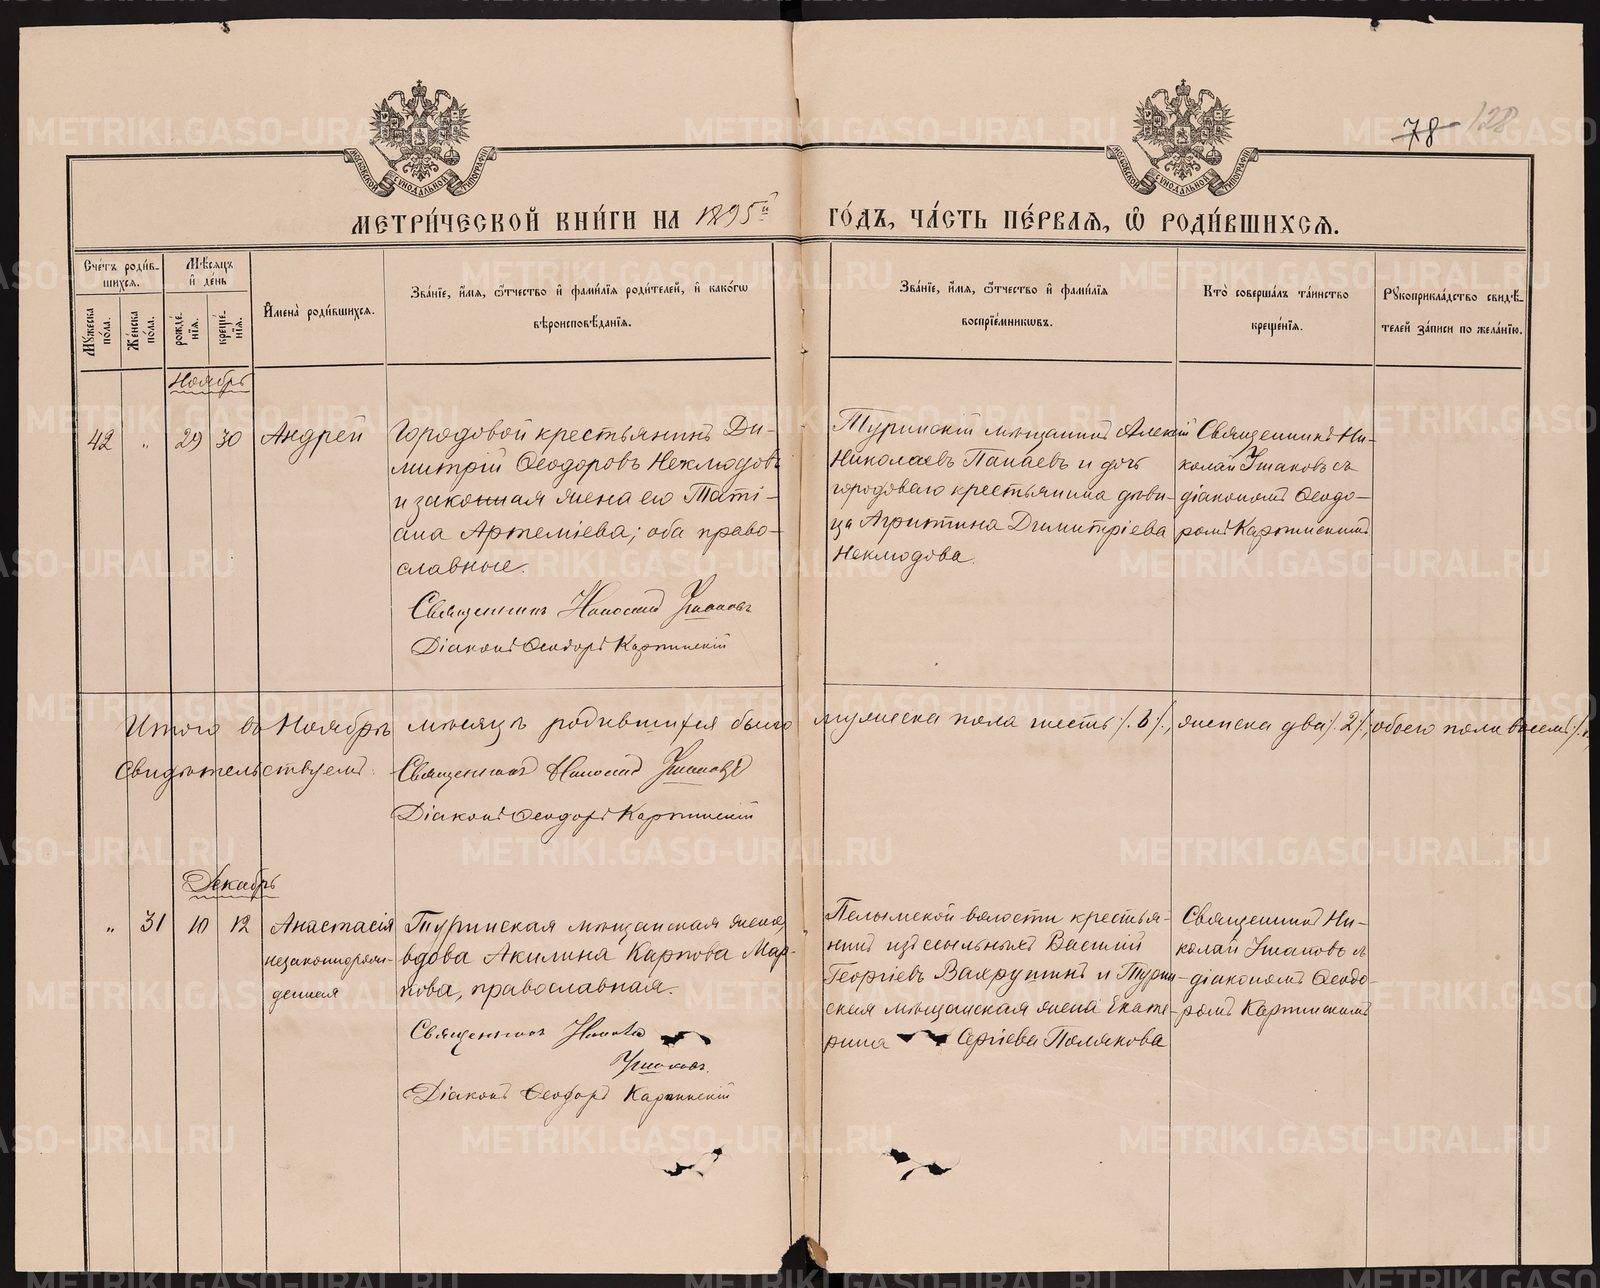 78 128
МЕТРИ́ЧЕСКОЙ КНИ́ГИ НА 1895й ГО́ДЪ, ЧА́СТЬ ПЕ́РВАЯ, Ѡ҆ РОДИ́ВШИХСЯ.
Сче́тъ роди́вшихся.
Мꙋ́жеска пола.
Же́нска пола.
Мѣ́сяцъ и҆ де́нь
рожде́нїя.
креще́нїя.
И҆мена̀ роди́вшихся.
Зва́нїе, и҆́мя, ѻ҆́тчество и҆ фами́лїя роди́телей, и҆ како́гѡ
вѣроисповѣ́данїя.
Зва́нїе, и҆́мя, ѻ҆́тчество и҆ фами́лїя
воспрїе́мникѡвъ.
Кто̀ соверша́лъ та́инство
креще́нїя.
Рꙋкоприкла́дство свидѣ́-
телей за́писи по жела́нїю.
Ноябрь
42 " 29 30 Андрей
Городовой крестьянинъ Ди-
митрій Ѳеодоровъ Неклюдовъ
и законная жена его Таті-
ана Артеміева; оба право-
славные.
Священникъ Николай Ушаковъ
Діаконъ Ѳеодоръ Карпинскій
Туринскій мѣщанинъ Алексій
Николаевъ Панаевъ и дочь
городоваго крестьянина дѣви-
ца Агриппина Димитріева
Неклюдова.
Священникъ Ни-
колай Ушаковъ съ
діакономъ Ѳеодо-
ромъ Карпинскимъ
Итого въ Ноябрѣ мѣсяцѣ родившихся было мужеска пола шесть /.6/., женска два /.2/., обоего пола восемь
Свидѣтельствуемъ:
Священникъ Николай Ушаковъ
Діаконъ Ѳеодоръ Карпинскій
Декабрь
" 31 10 12 Анастасія
незаконнорож-
денная
Туринская мѣщанская жена,
вдова Акилина Карпова Мар-
кова, православная.
Священникъ Николай
Ушаковъ.
Діаконъ Ѳеодоръ Карпинскій
Пелымской волости крестья-
нинъ изъ ссыльныхъ Василій
Георгіевъ Вахрушинъ и Турин-
ская мѣщанская жена Екате-
рина Сергіева Полякова
Священникъ Ни-
колай Ушаковъ съ
діакономъ Ѳеодо-
ромъ Карпинскимъ
METRIKI.GASO-URAL.RU